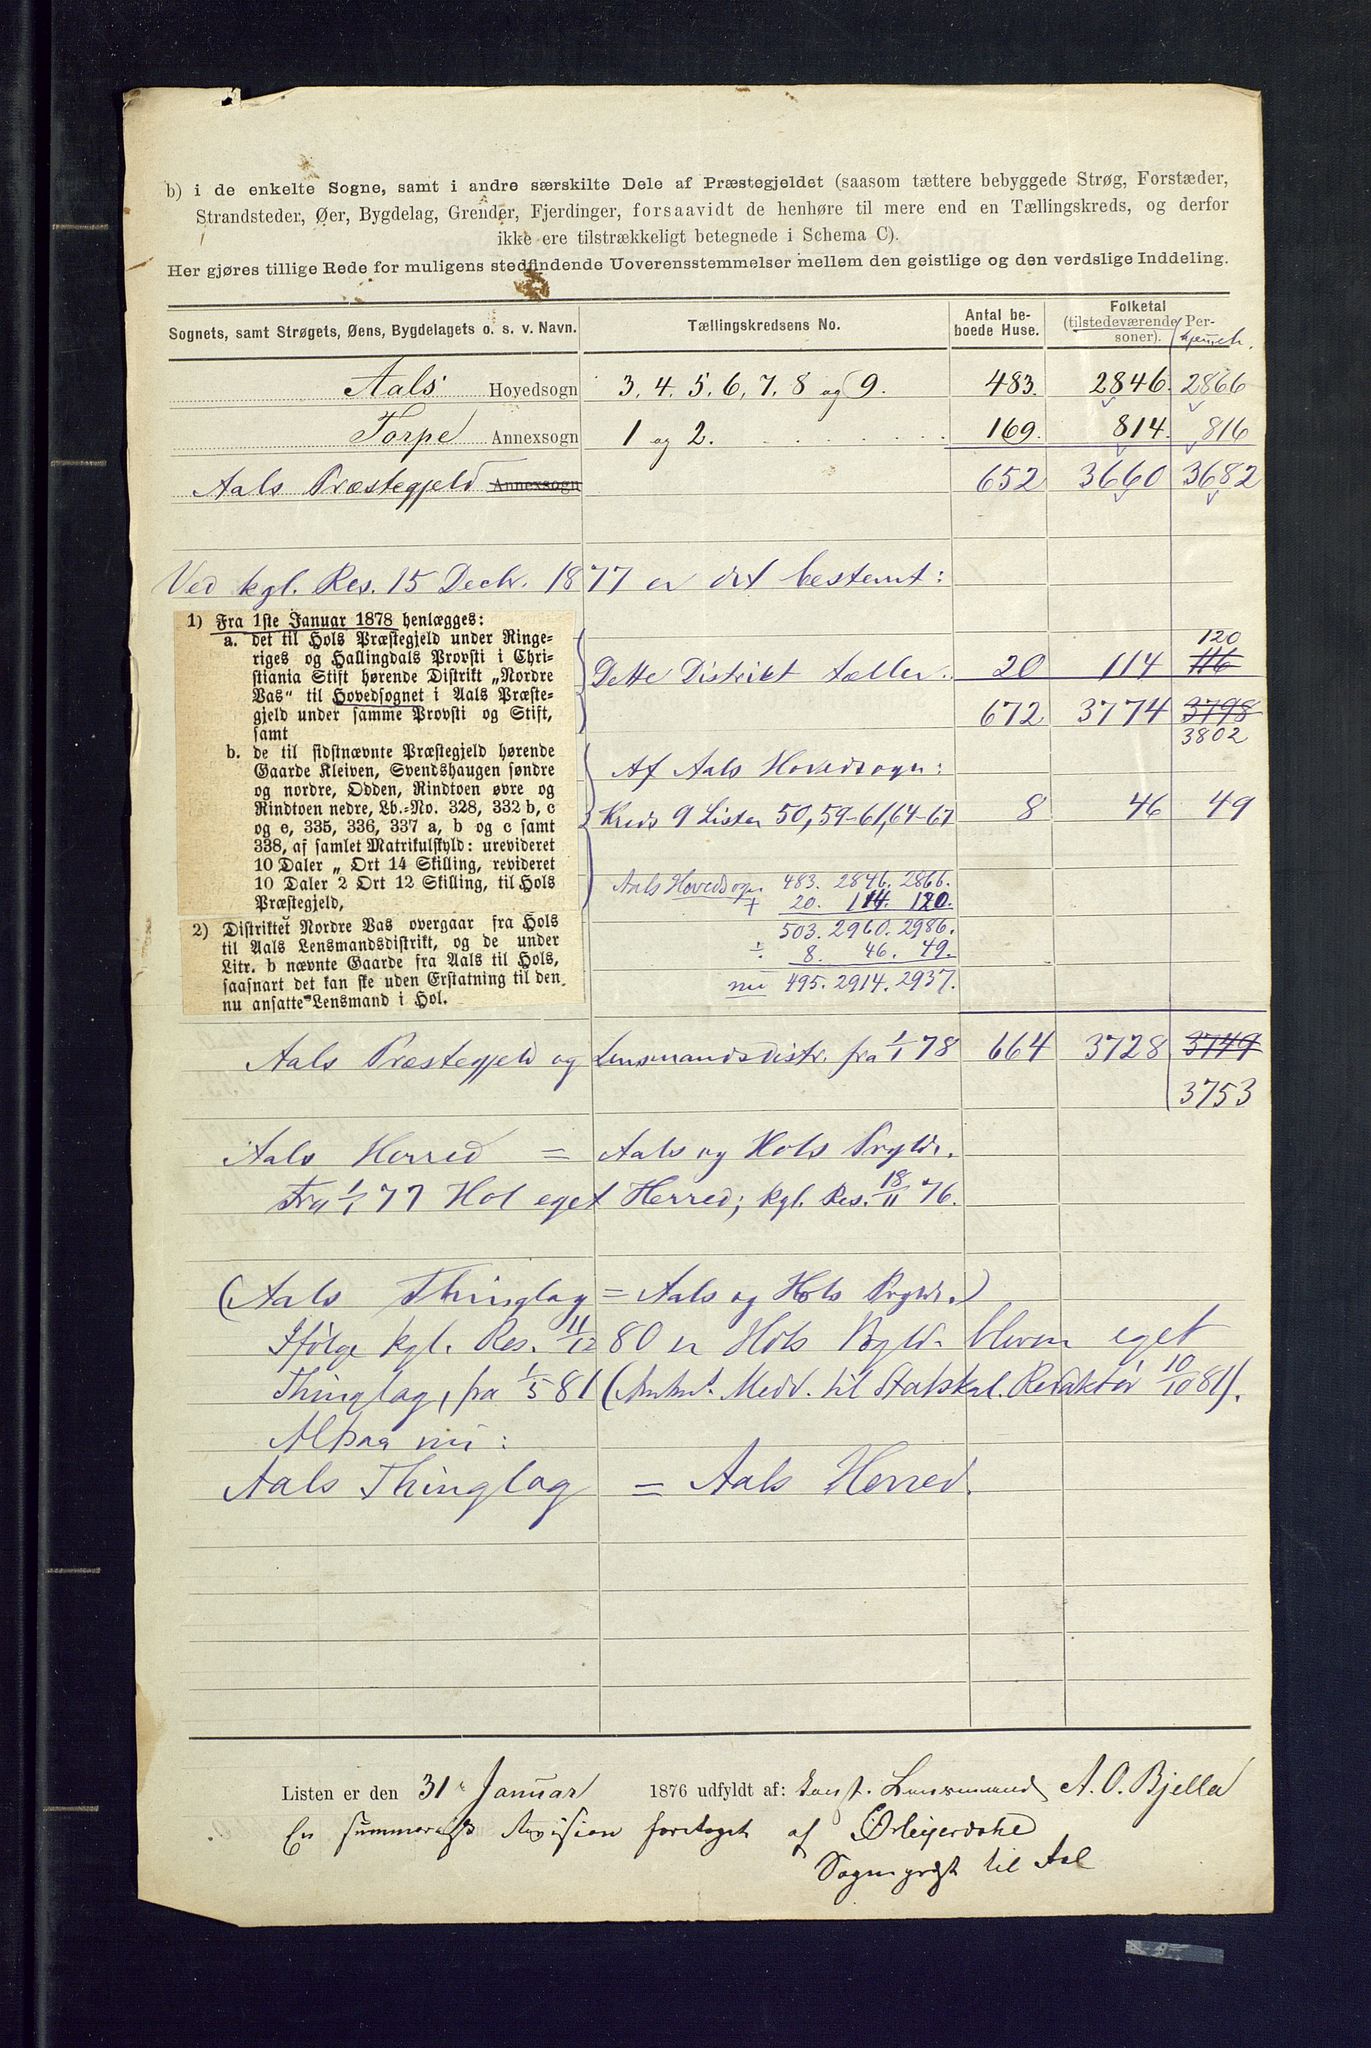 b) i de enkelte Sogne, samt i andre særskilte Dele af Præstegjeldet (saasom tættere bebyggede Strøg, Forstæder,
Strandsteder, Øer, Bygdelag, Grender, Fjerdinger, forsaavidt de henhøre til mere end en Tællingskreds, og derfor
ikke ere tilstrækkeligt betegnede i Schema C).
Her gjøres tillige Rede for muligens stedfindende Uoverensstemmelser mellem den geistlige og den verdslige Inddeling.
Sognets, samt Strøgets, Øens, Bygdelagets o. s. v. Navn. Tællingskredsens No. Antal beboede Huse. Folketal (tilstedeværende Personer). hjemmeh.
Aals Hovedsogn 3, 4, 5, 6, 7, 8 og 9. 483. 2846. 2866
Torpe Annexsogn 1 og 2. 169. 814. 816
Aals Præstegjeld Annexsogn 652 3660 3682
Ved kgl. Res. 15 Decbr. 1877 er det bestemt:
1) Fra 1ste Januar 1878 henlægges:
a. det til Hols Præstegjeld under Ringe-
riges og Hallingdals Provsti i Chri-
stiania Stift hørende Distrikt „Nordre
Vas“ til Hovedsognet i Aals Præste-
gjeld under samme Provsti og Stift,
samt
b. de til sidstnævnte Præstegjeld hørende
Gaarde Kleiven, Svendshaugen søndre
og nordre, Odden, Rindtoen øvre og
Rindtoen nedre, Lb.-No. 328, 332 b, c
og e, 335, 336, 337 a, b og c samt
338, af samlet Matrikulskyld: urevideret
10 Daler „ Ort 14 Skilling, revideret
10 Daler 2 Ort 12 Skilling, til Hols
Præstegjeld,
2) Distriktet Nordre Vas overgaar fra Hols
til Aals Lensmandsdistrikt, og de under
Litr. b nævnte Gaarde fra Aals til Hols,
saasnart det kan ske uden Erstatning til den
nu ansatte Lensmand i Hol.
120
Dette Distrikt tæller. 20 114 116
672 3774 3798
3802
Af Aals Hovedsogn:
Kreds 9 Lister 50, 59-61, 64-67 8 46 49
Aals Hovedsogn 483. 2846. 2866.
+ 20. 114. 120.
503. 2960. 2986.
÷ 8. 46. 49.
nu 495. 2914. 2937.
Aals Præstegjeld og Lensmandsdistr. fra 1/1 78 664 3728 3749
3753
Aals Herred = Aals og Hols Prgldr.
Fra 1/1 77 Hol eget Herred; kgl. Res. 18/11 76.
(Aals Thinglag = Aals og Hols Prgldr.)
Ifølge kgl. Res. 11/12 80 er Hols Prgld. bleven eget
Thinglag, fra 1/5 81 (Amtm. Medd. til Statskal. Redaktør 10/10 81).
Altsaa nu:
Aals Thinglag = Aals Herred.
Listen er den 31 Januar 1876 udfyldt af: const. Lensmand A. O. Bjella
En summarisk Revision foretaget af
Sogneprest til Aal